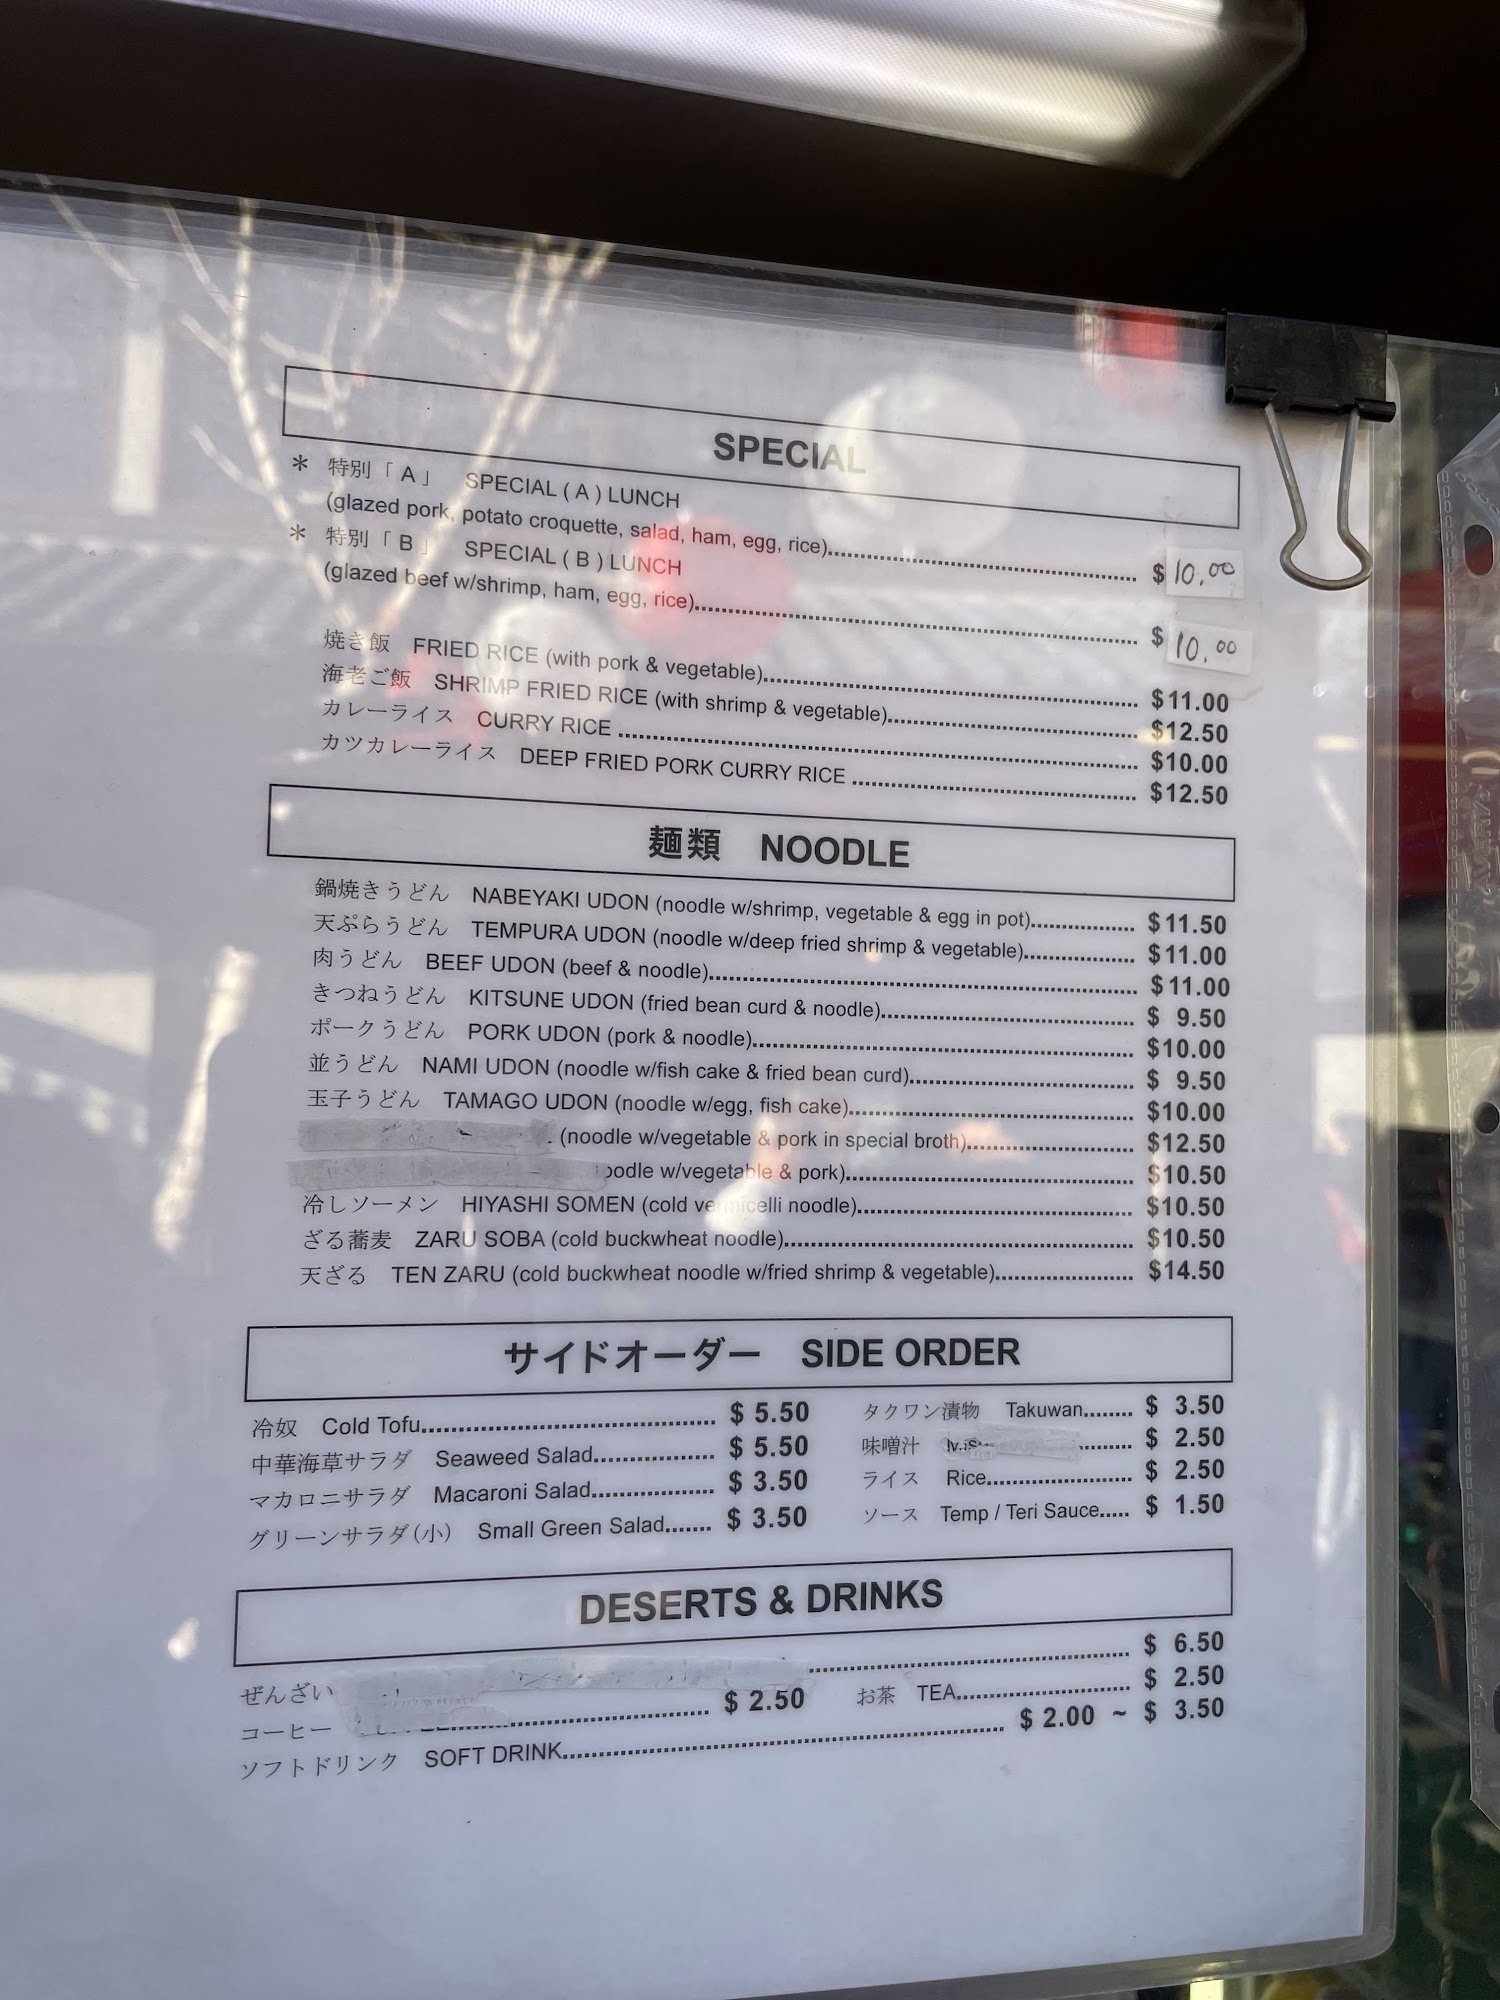 SPECIAL
＊ 特別「A」 SPECIAL ( A ) LUNCH
(glazed pork, potato croquette, salad, ham, egg, rice)........ $ 10.00
＊ 特別「B」 SPECIAL ( B ) LUNCH
(glazed beef w/shrimp, ham, egg, rice)........ $ 10.00
焼き飯 FRIED RICE (with pork & vegetable)........ $11.00
海老ご飯 SHRIMP FRIED RICE (with shrimp & vegetable)........ $12.50
カレーライス CURRY RICE ........ $10.00
カツカレーライス DEEP FRIED PORK CURRY RICE ........ $12.50
麺類 NOODLE
鍋焼きうどん NABEYAKI UDON (noodle w/shrimp, vegetable & egg in pot)........ $11.50
天ぷらうどん TEMPURA UDON (noodle w/deep fried shrimp & vegetable)........ $11.00
肉うどん BEEF UDON (beef & noodle)........ $11.00
きつねうどん KITSUNE UDON (fried bean curd & noodle)........ $ 9.50
ポークうどん PORK UDON (pork & noodle)........ $10.00
並うどん NAMI UDON (noodle w/fish cake & fried bean curd)........ $ 9.50
玉子うどん TAMAGO UDON (noodle w/egg, fish cake)........ $10.00
(noodle w/vegetable & pork in special broth)........ $12.50
w/vegetable & pork)........ $10.50
冷しソーメン HIYASHI SOMEN (cold vermicelli noodle)........ $10.50
ざる蕎麦 ZARU SOBA (cold buckwheat noodle)........ $10.50
天ざる TEN ZARU (cold buckwheat noodle w/fried shrimp & vegetable)........ $14.50
サイドオーダー SIDE ORDER
冷奴 Cold Tofu........ $ 5.50
中華海草サラダ Seaweed Salad........ $ 5.50
マカロニサラダ Macaroni Salad........ $ 3.50
グリーンサラダ(小) Small Green Salad....... $ 3.50
タクワン漬物 Takuwan........ $ 3.50
味噌汁 ........ $ 2.50
ライス Rice........ $ 2.50
ソース Temp / Teri Sauce..... $ 1.50
DESERTS & DRINKS
ぜんざい ........ $ 6.50
コーヒー ........ $ 2.50 お茶 TEA........ $ 2.50
ソフトドリンク SOFT DRINK........ $ 2.00 ~ $ 3.50